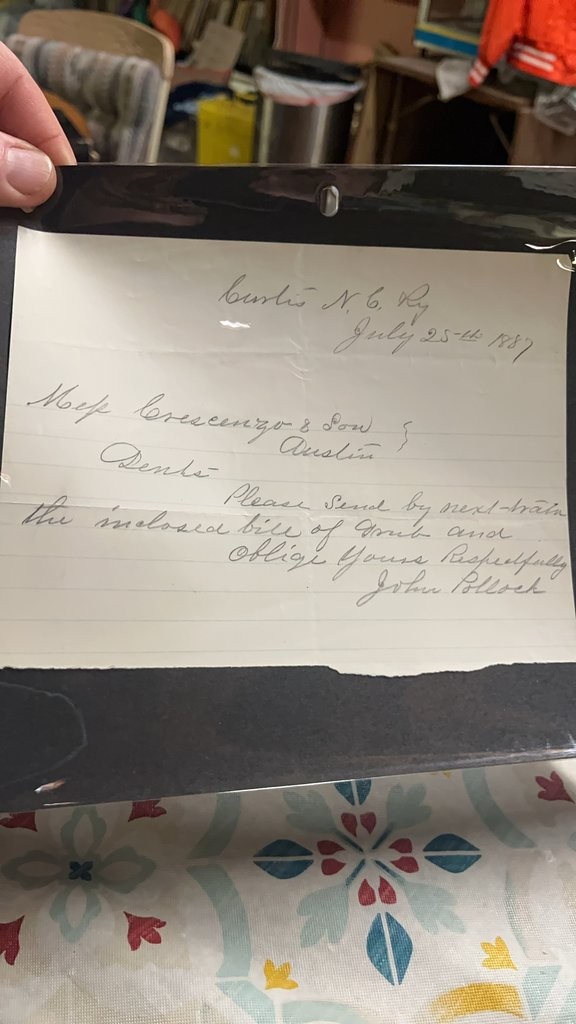 Curtis N. C. Ry
July 25th 1887
Mess Crescenzo & Son }
Austin
Gents
Please Send by next train
the inclosed bill of Grub and
Oblige Yours Respectfully
John Pollock